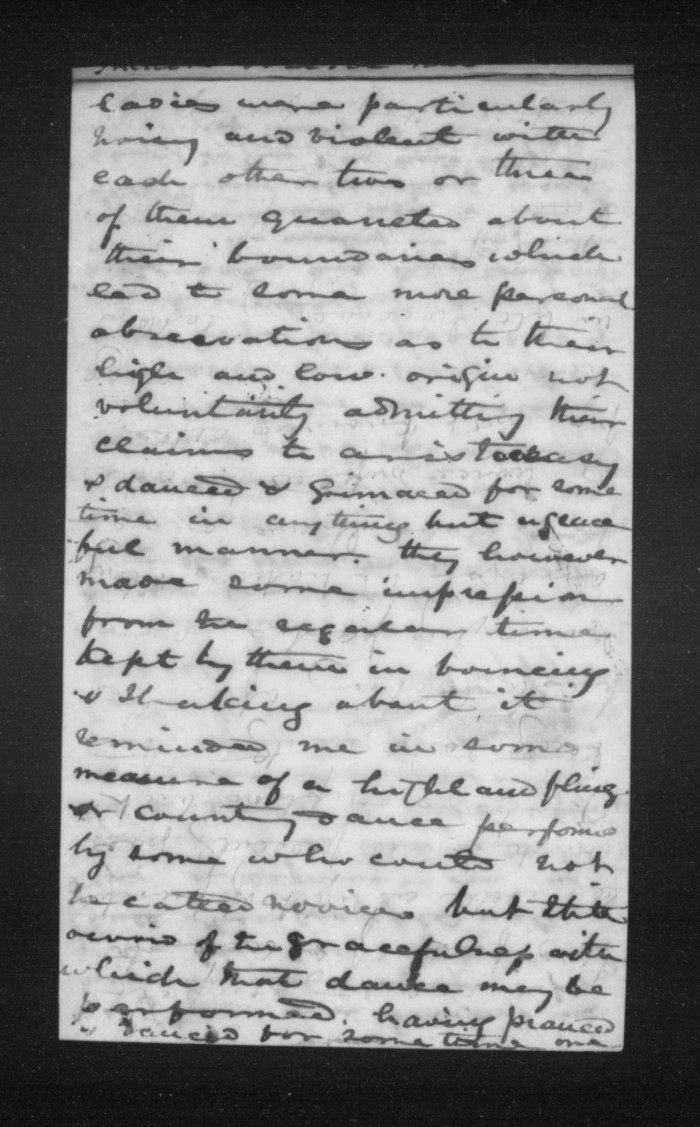 ladies were particularly
noisy and violent with
each other two or three
of them quarreled about
their boundaries which
led to some more personal
observations as to their
high and low origin not
voluntarily admitting their
claims to aristocracy
& danced & Grimaced for some
time in anything but ungrace
ful manner. they however
made some impression
from the regular time
kept by them in bouncing
& Shaking about it
reminded me in some
measure of a highland fling
or country dance performed
by some who could not
be called novices but still
of the gracefulness with
which that dance may be
performed. having pranced
& danced for some time one